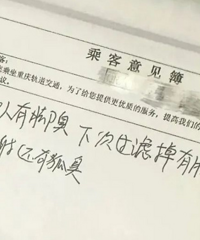 乘客意见簿
客：
乘坐重庆轨道交通，为了给您提供更优质的服务，提高我们的
议。
人有脚臭 下次过滤掉有
还有狐臭